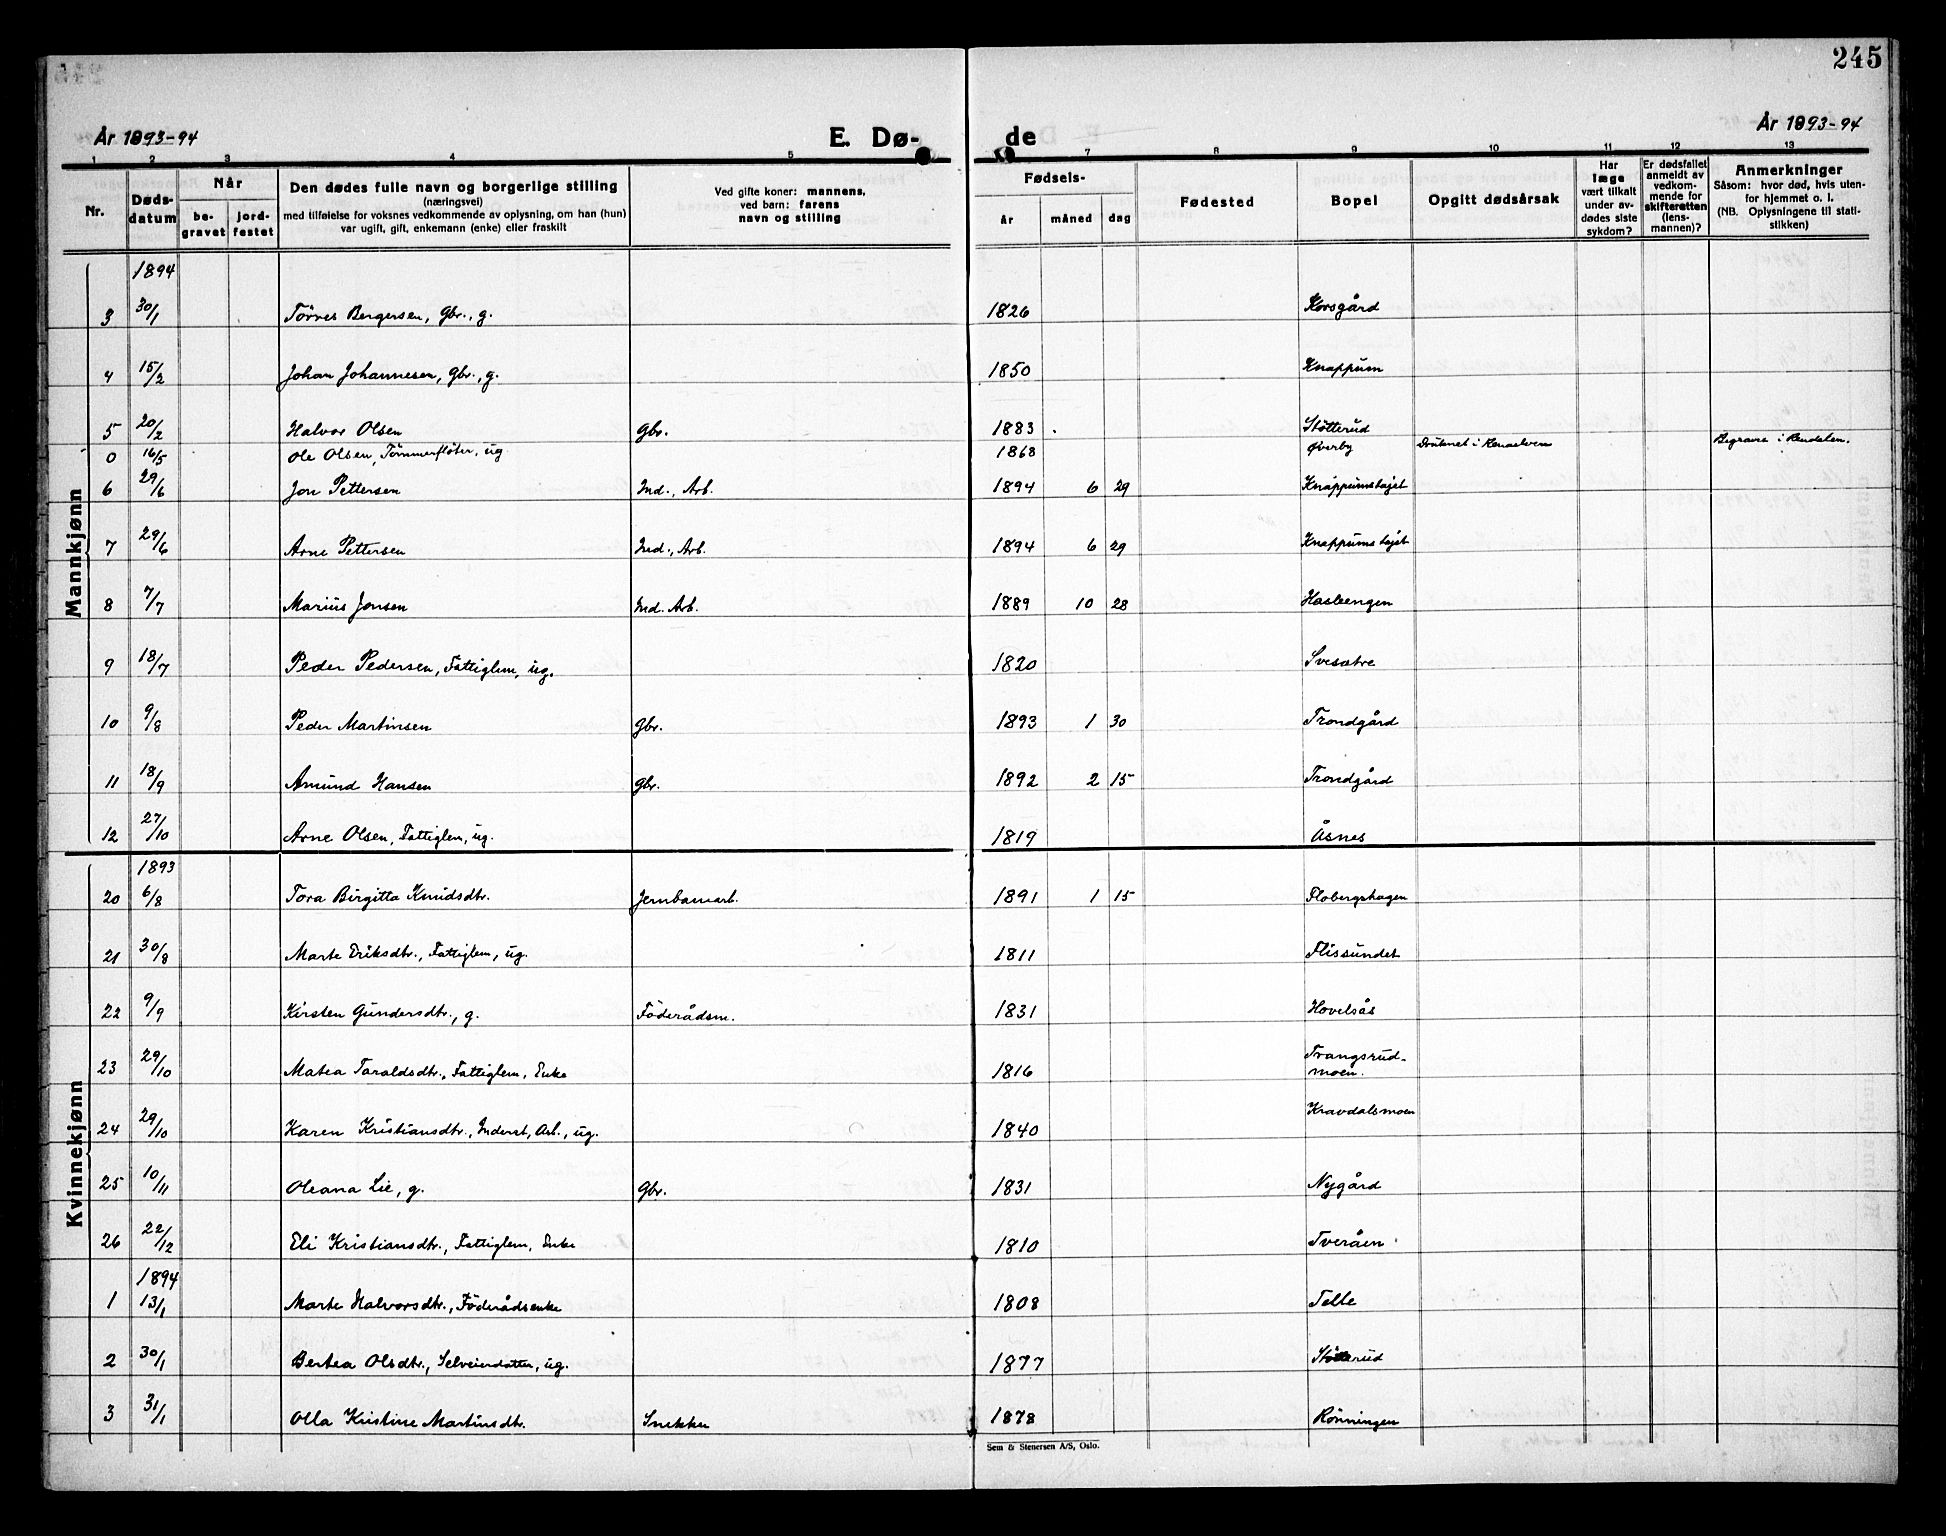 245
År 1893-94
E. Dø-
de
År 1893-94
1 2 3 4 5 7 8 9 10 11 12 13
Nr.
Dødsdatum
Når
begravet
jordfestet
Den dødes fulle navn og borgerlige stilling
(næringsvei)
med tilføielse for voksnes vedkommende av oplysning, om han (hun)
var ugift, gift, enkemann (enke) eller fraskilt
Ved gifte koner: mannens,
ved barn: farens
navn og stilling
Fødsels-
år måned dag
Fødested
Bopel
Opgitt dødsårsak
Har
læge
vært tilkalt
under avdødes siste
sykdom?
Er dødsfallet
anmeldt av
vedkommende for
skifteretten
(lensmannen)?
Anmerkninger
Såsom: hvor død, hvis utenfor hjemmet o. l.
(NB. Oplysningene til statistikken)
Mannkjønn
1894
3 30/1 Törres Bergersen, Gbr., g. 1826 Korsgård
4 15/2 Johan Johannesen, Gbr., g. 1850 Knappum
5 20/2 Halvor Olsen Gbr. 1883 Støtterud
0 16/5 Ole Olsen, Tömmerflöter, ug. 1868 Øverby Druknet i Renaelven Begravet i Rendalen.
6 29/6 Jon Pettersen Ind., Arb. 1894 6 29 Knappumstajet
7 29/6 Arne Pettersen Ind., Arb. 1894 6 29 Knappumstajet
8 7/7 Marius Jonsen Ind. Arb. 1889 10 28 Hasleengen
9 18/7 Peder Pedersen, Fattiglem, ug. 1820 Svesætre
10 9/8 Peder Martinsen Gbr. 1893 1 30 Trondgård
11 18/9 Amund Hansen Gbr. 1892 2 15 Trondgård
12 27/10 Arne Olsen, Fattiglem, ug. 1819 Åsnes
Kvinnekjønn
1893
20 6/8 Tora Birgitta Knudsdtr. Jernbanearb. 1891 1 15 Flobergshagen
21 30/8 Marte Eriksdtr., Fattiglem, ug. 1811 Flissundet
22 9/9 Kirsten Gundersdtr., g. Föderådsm. 1831 Hovelsås
23 29/10 Matea Taraldsdtr., Fattiglem, Enke 1816 Trangsrud-
moen.
24 29/10 Karen Kristiansdtr., Inderst, Arb., ug. 1840 Kravdalsmoen
25 10/11 Oleana Lie, g. Gbr. 1831 Nygård
26 22/12 Eli Kristiansdtr., Fattiglem, Enke 1810 Tveråen
1894
1 13/1 Marte Halvorsdtr., Föderådsenke 1808 Telle
2 30/1 Bertea Olsdtr., Selveierdatter, ug. 1877 Støtterud
3 31/1 Olla Kristine Martinsdtr. Snekker 1878 Rönningen
Sem & Stenersen A/S, Oslo.